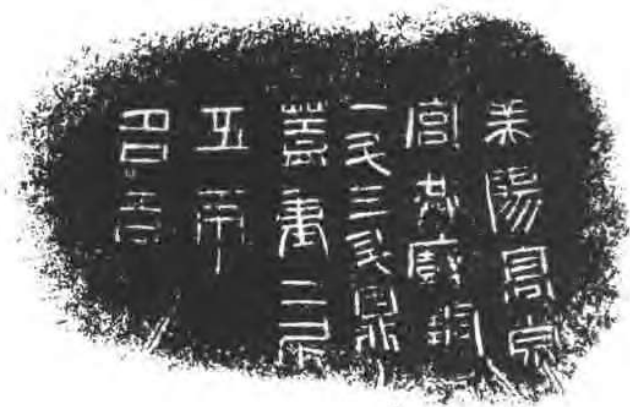 美陽高泉
宮共廚銅
一斗三升鼎
蓋重二斤
五兩